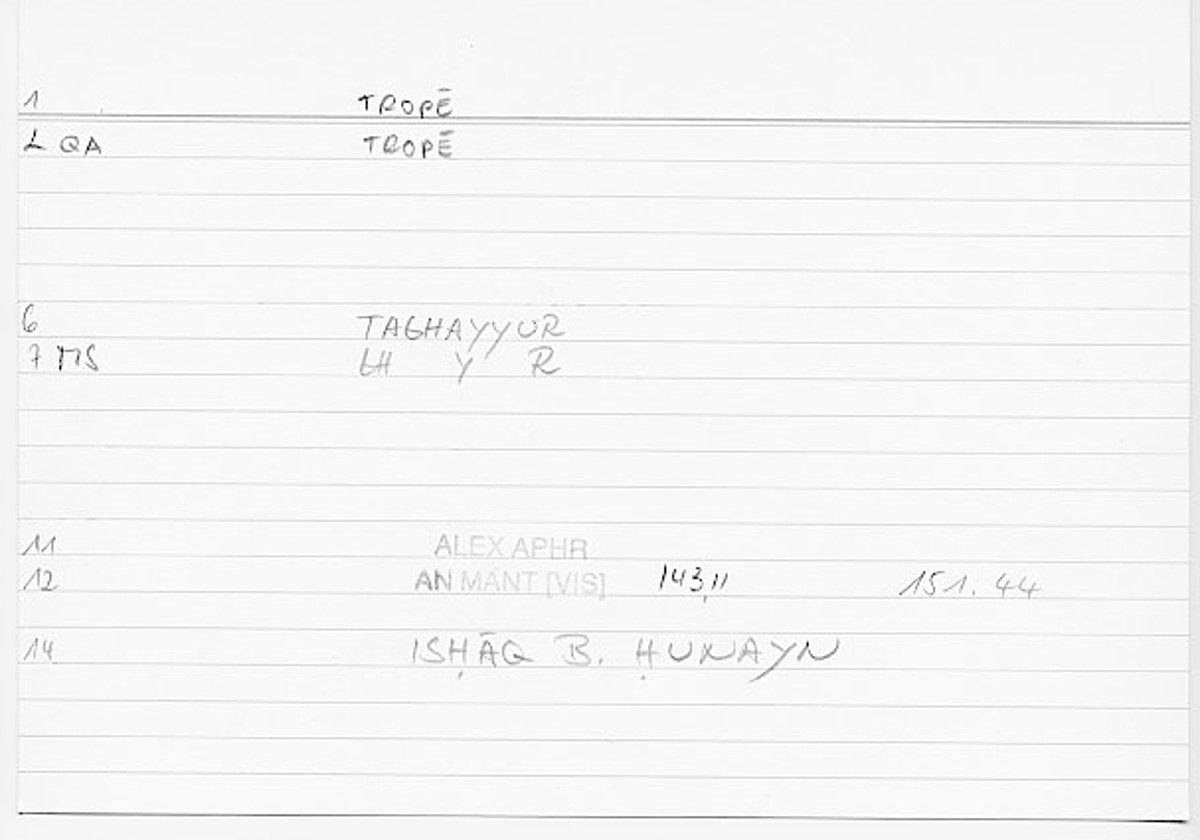 1 TROPĒ
2 QA TROPĒ
6 TAGHAYYUR
7 MS GH Y R
11 ALEX APHR
12 AN MANT [VIS] 143,11 151.44
14 ISḤĀQ B. ḤUNAYN